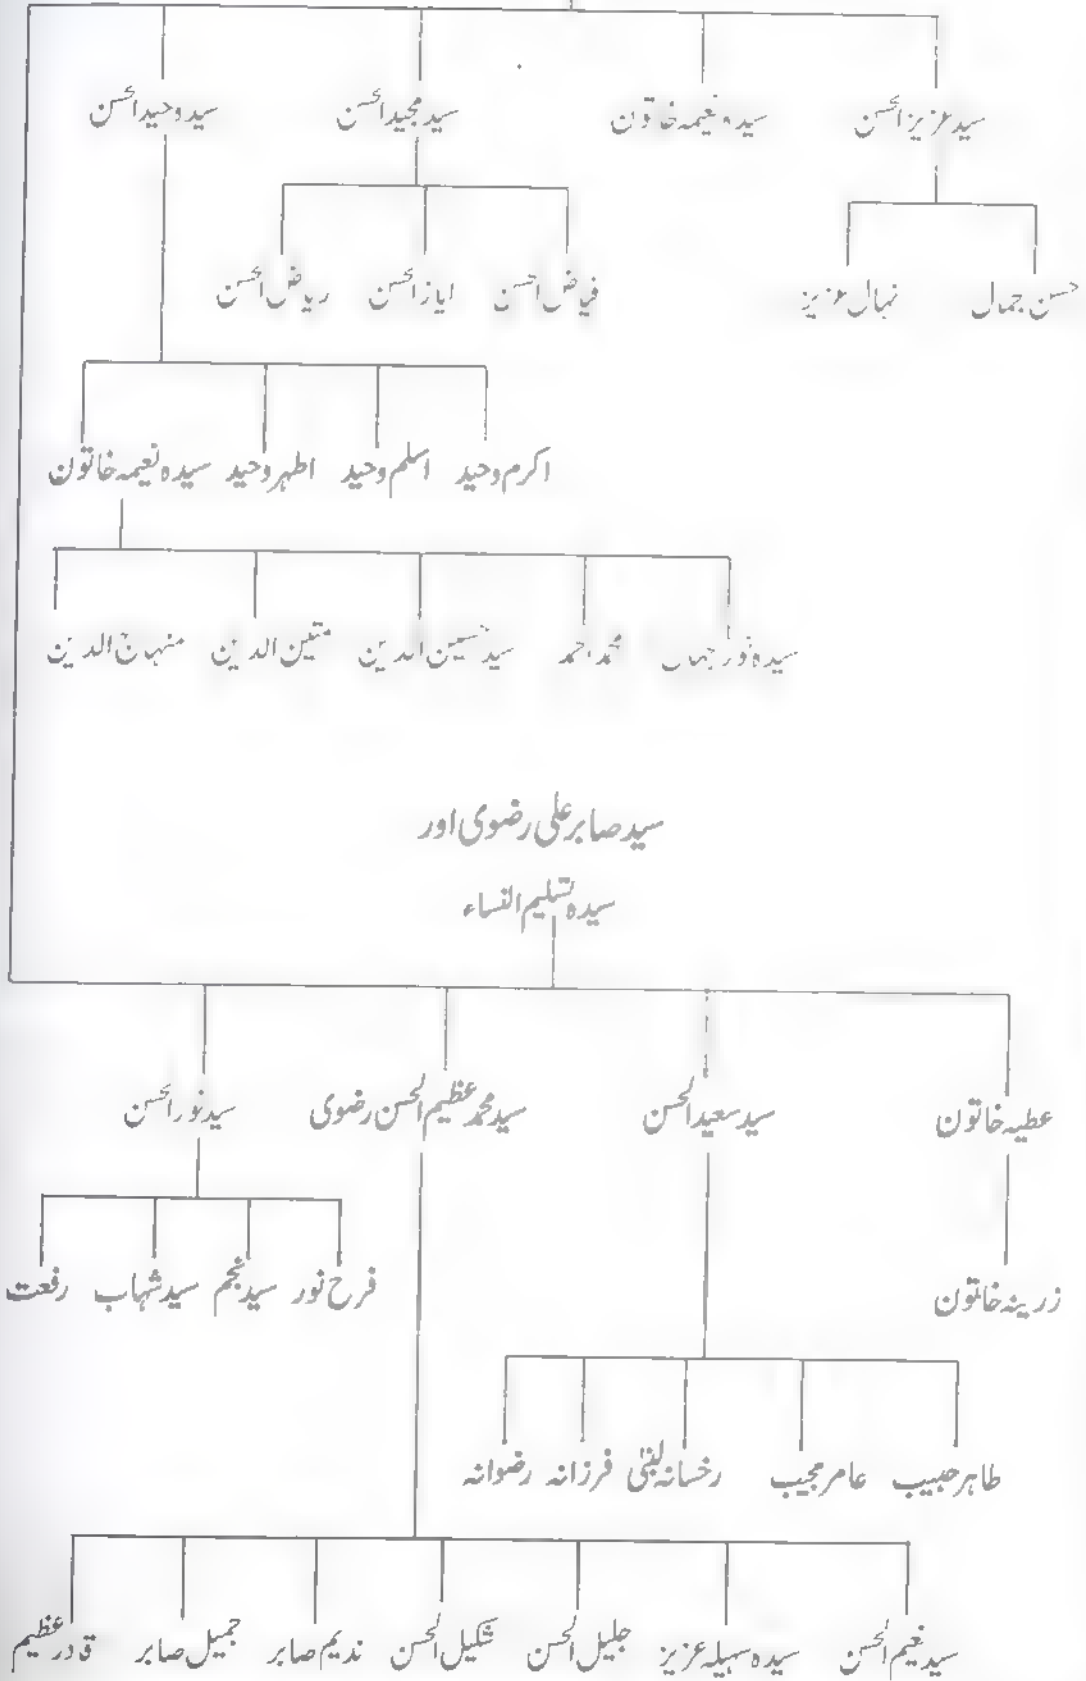 سید عزیز الحسن سیدہ نعیمہ خاتون سید مجید الحسن سید وحید الحسن
حسن جمال نہال عزیز فیاض الحسن ایاز الحسن ریاض الحسن
اکرم وحید اسلم وحید اطہر وحید سیدہ نعیمہ خاتون
سیدہ نور جہاں محمد احمد سید حسین الدین متین الدین منہاج الدین
سید صابر علی رضوی اور
سیدہ تسلیم النساء
عطیہ خاتون سید سعید الحسن سید محمد عظیم الحسن رضوی سید نور الحسن
زرینہ خاتون فرح نور سید نجم سید شہاب رفعت
طاہر حبیب عامر مجیب رخسانہ لبنیٰ فرزانہ رضوانہ
سید نعیم الحسن سیدہ سہیلہ عزیز جلیل الحسن شکیل الحسن ندیم صابر جمیل صابر قادر عظیم